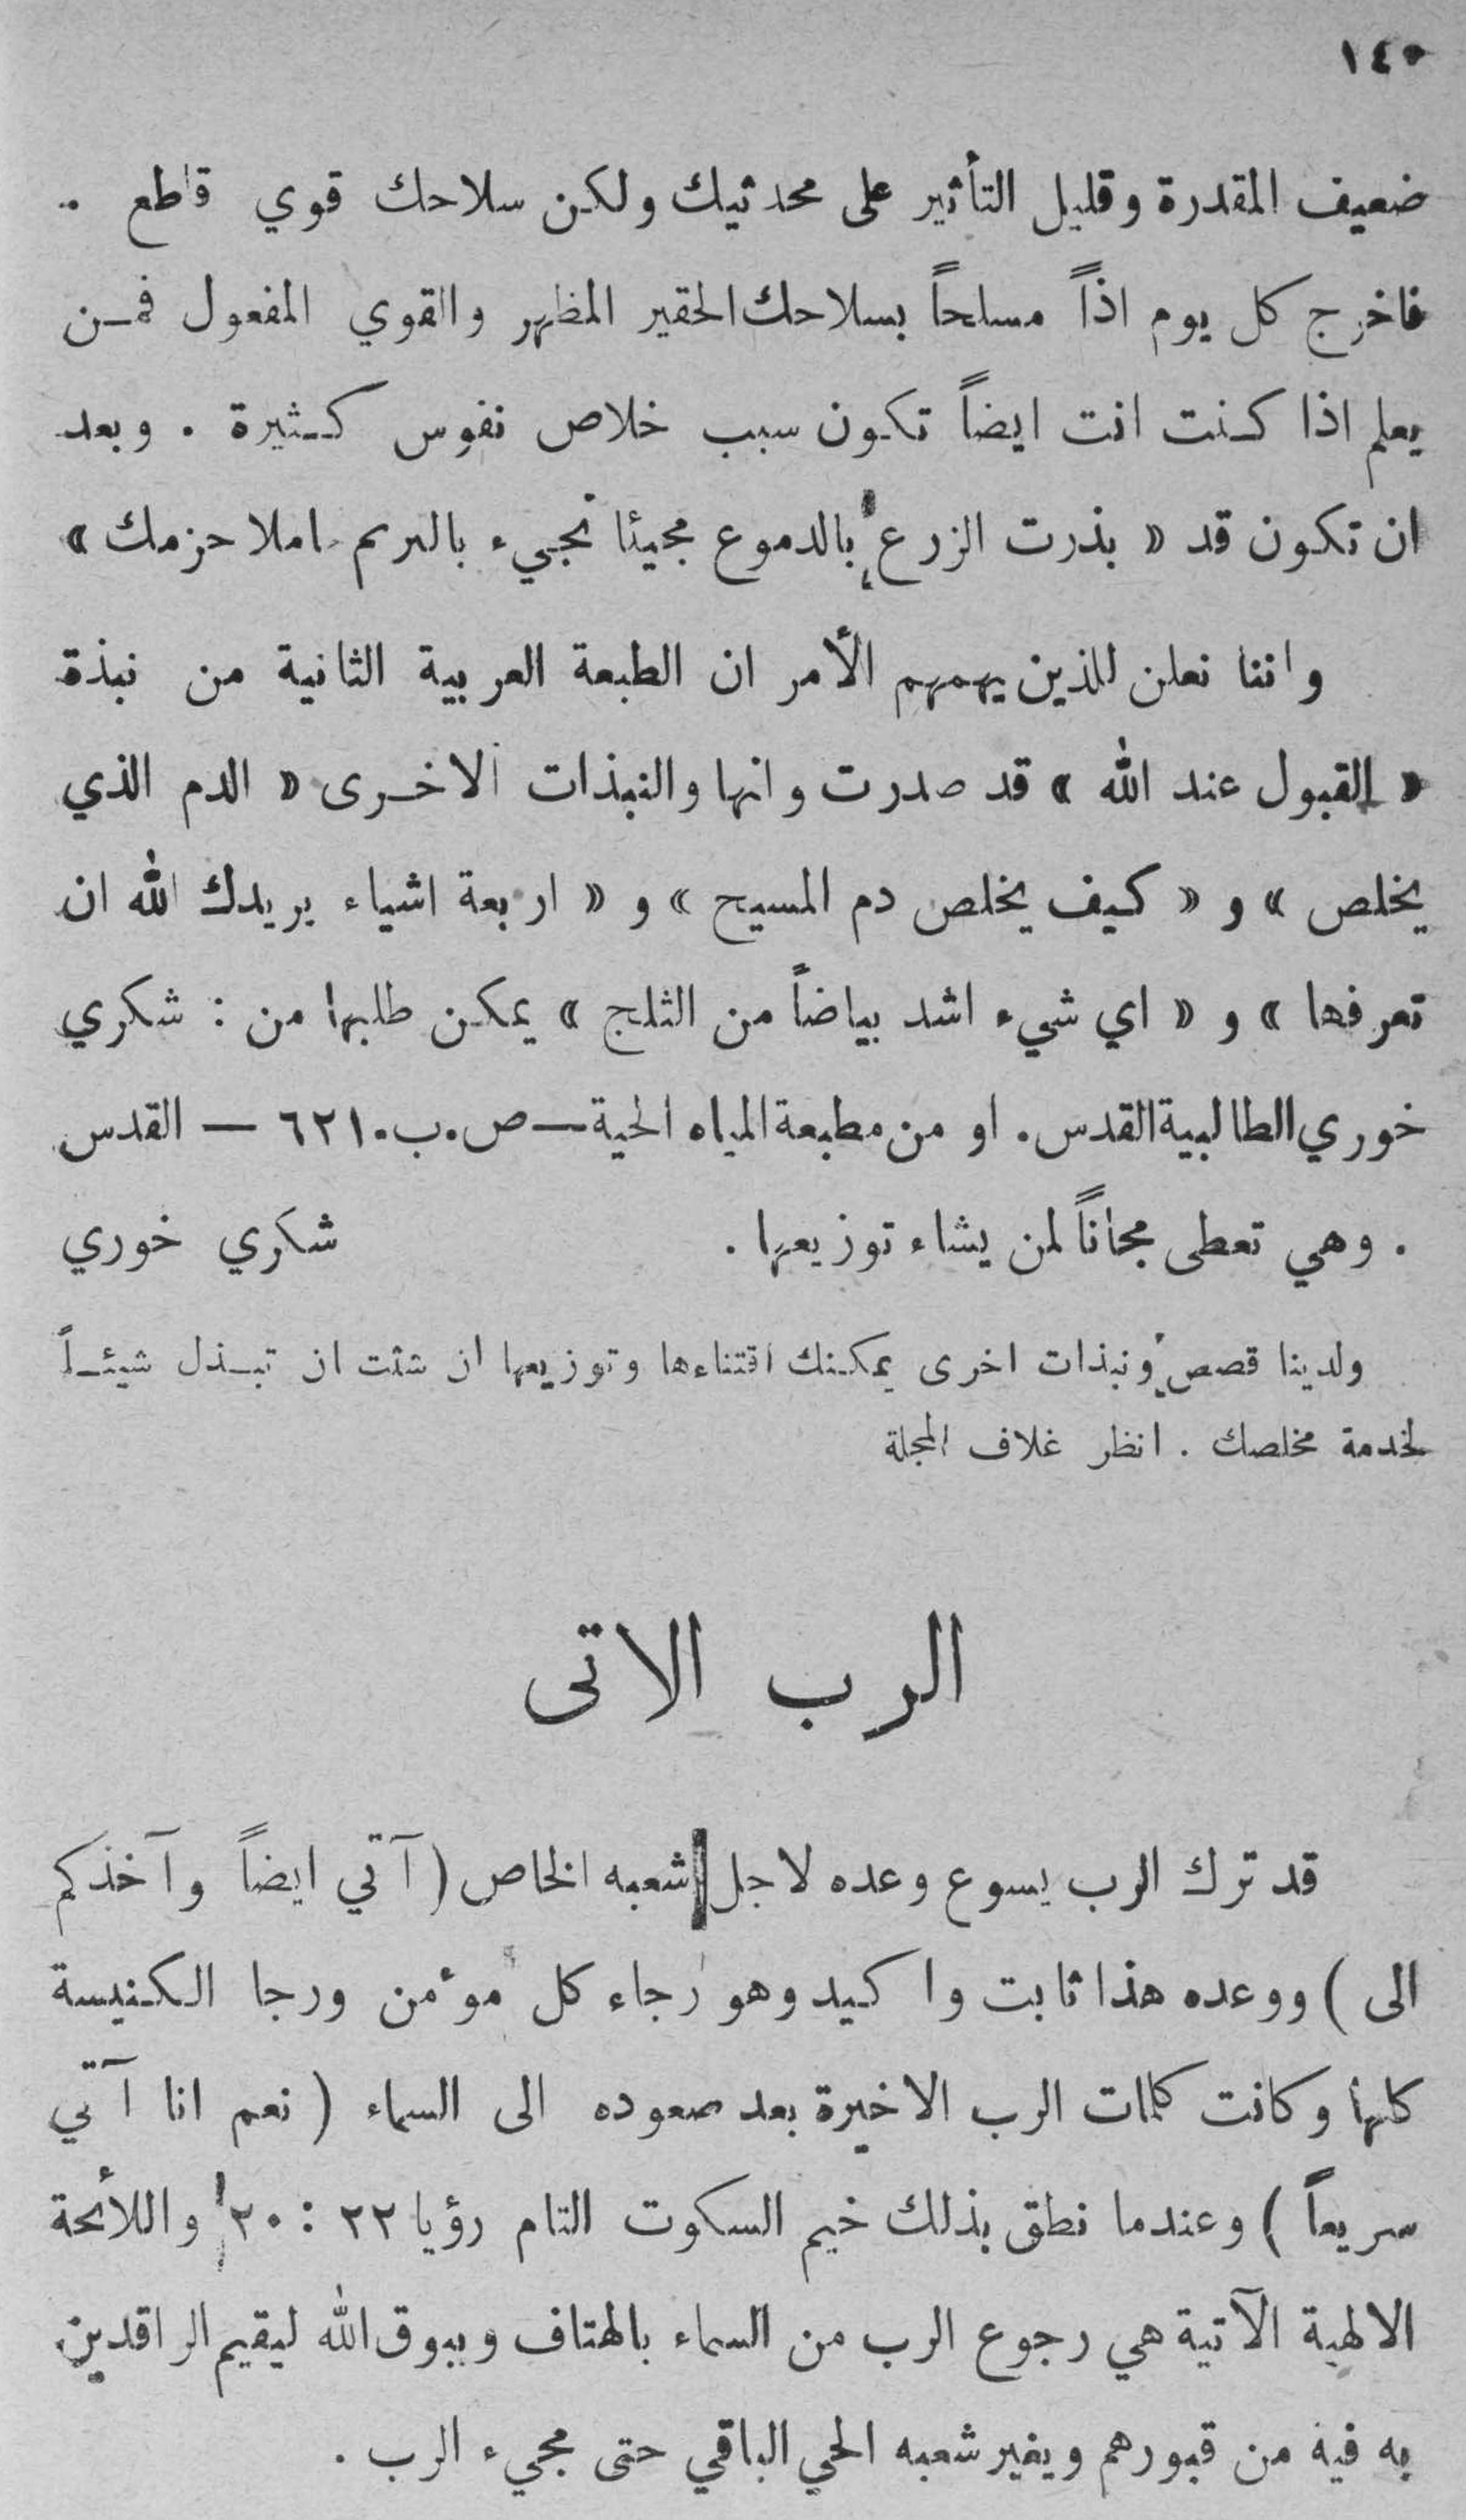 ١٤٠
ضعيف المقدرة وقليل التأثير على محدثيك ولكن سلاحك قوي قاطع .
فاخرج كل يوم اذاً مسلحاً بسلاحك الحقير المظهر والقوي المفعول فمن
يعلم اذا كنت انت ايضاً تكون سبب خلاص نفوس كثيرة . وبعد
ان تكون قد « بذرت الزرع بالدموع مجيئا تجيء بالترنم املا حزمك »
واننا نعلن للذين يهمهم الأمر ان الطبعة العربية الثانية من نبذة
« القبول عند الله » قد صدرت وانها والنبذات الاخرى « الدم الذي
يخلص » و « كيف يخلص دم المسيح » و « اربعة اشياء يريدك الله ان
تعرفها » و « اي شيء اشد بياضاً من الثلج » يمكن طلبها من : شكري
خوري الطالبية القدس . او من مطبعة المياه الحية – ص.ب. ٦٢١ – القدس
. وهي تعطى مجاناً لمن يشاء توزيعها . شكري خوري
ولدينا قصص ونبذات اخرى يمكنك اقتناءها وتوزيعها ان شئت ان تبذل شيئاً
لخدمة مخلصك . انظر غلاف المجلة
الرب الاتى
قد ترك الرب يسوع وعده لاجل شعبه الخاص ( آتي ايضاً وآخذكم
الى ) ووعده هذا ثابت واكيد وهو رجاء كل مؤمن ورجا الكنيسة
كلها وكانت كلمات الرب الاخيرة بعد صعوده الى السماء ( نعم انا آتي
سريعاً ) وعندما نطق بذلك خيم السكوت التام رؤيا ٢٢ : ٢٠ واللأئحة
الالهية الآتية هي رجوع الرب من السماء بالهتاف وببوق الله ليقيم الراقدين
به فيه من قبورهم ويغير شعبه الحي الباقي حتى مجيء الرب .